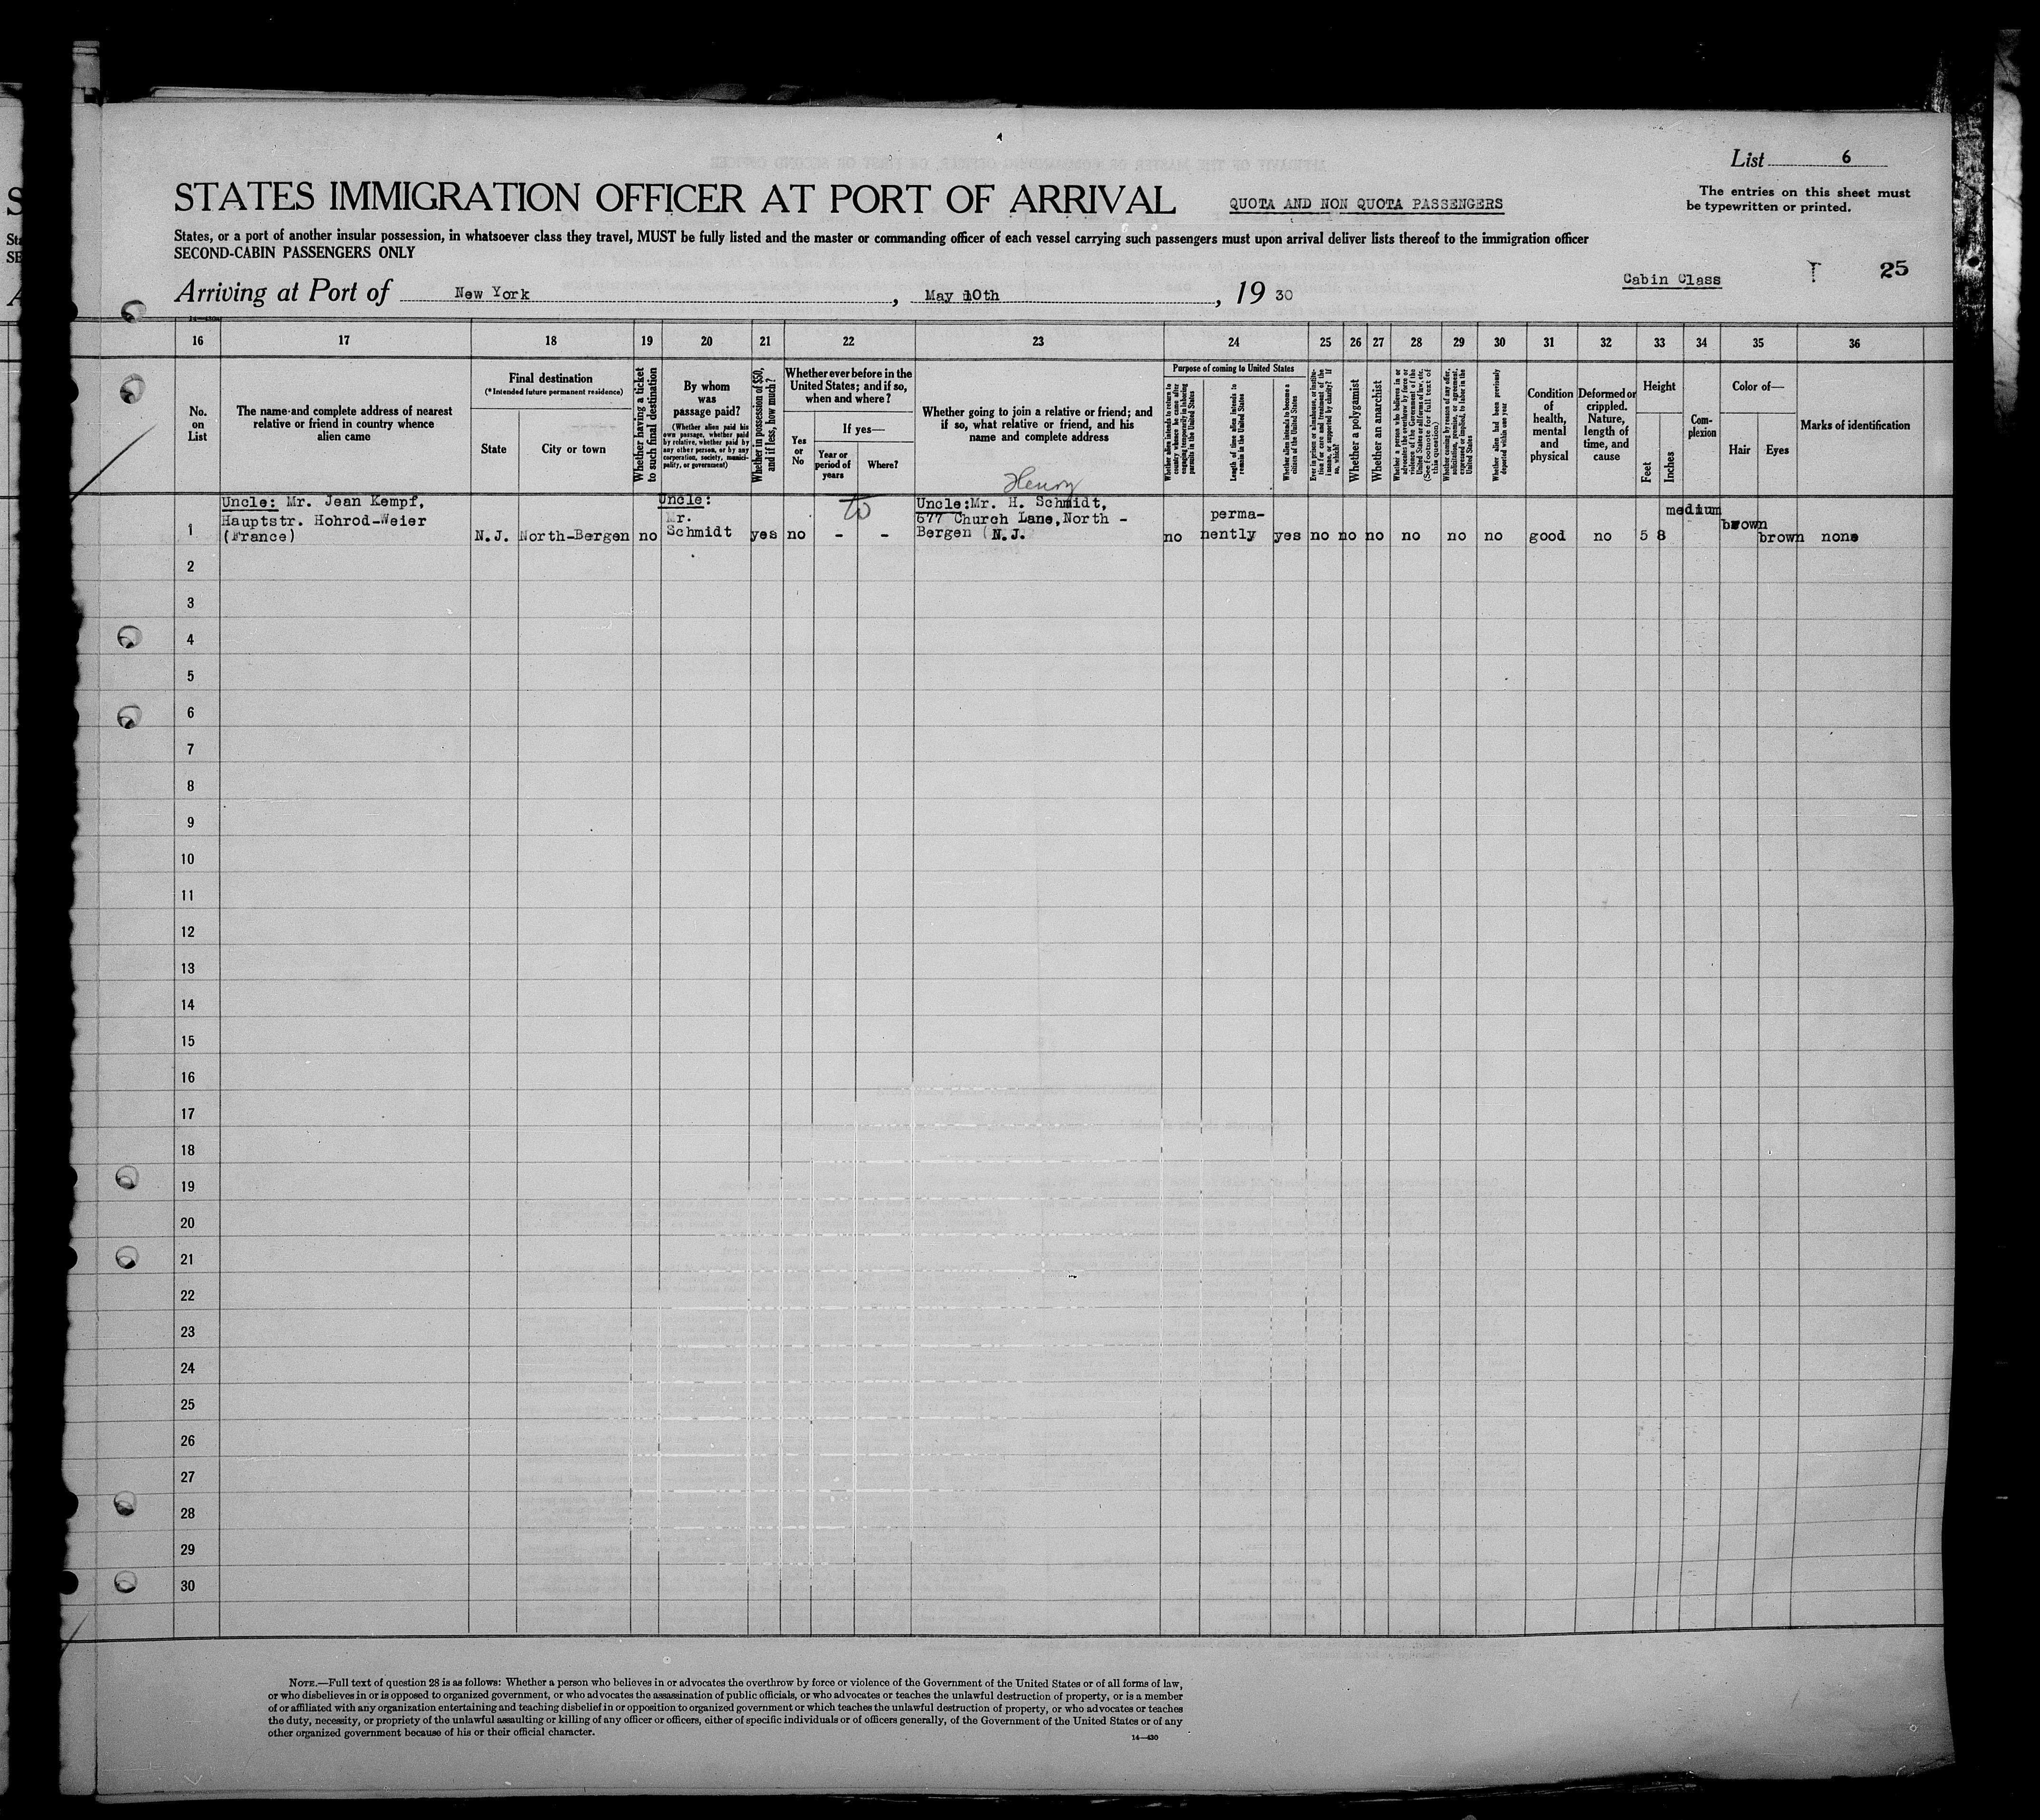 List 6
The entries on this sheet must
be typewritten or printed.
STATES IMMIGRATION OFFICER AT PORT OF ARRIVAL
QUOTA AND NON QUOTA PASSENGERS
States, or a port of another insular possession, in whatsoever class they travel, MUST be fully listed and the master or commanding officer of each vessel carrying such passengers must upon arrival deliver lists thereof to the immigration officer
SECOND-CABIN PASSENGERS ONLY
Cabin Class
25
Arriving at Port of New York, May 10th, 19 30
16 17 18 19 20 21 22 23 24 25 26 27 28 29 30 31 32 33 34 35 36
No.
on
List
The name and complete address of nearest
relative or friend in country whence
alien came
Final destination
(*Intended future permanent residence)
State
City or town
Whether having a ticket
to such final destination
By whom
was
passage paid?
(Whether alien paid his
own passage, whether paid
by relative, whether paid by
any other person, or by any
corporation, society, munici-
pality, or government)
Whether in possession of $50,
and if less, how much?
Whether ever before in the
United States; and if so,
when and where?
Yes
or
No
If yes—
Year or
period of
years
Where?
Whether going to join a relative or friend; and
if so, what relative or friend, and his
name and complete address
Purpose of coming to United States
Whether alien intends to return to
country whence he came after
engaging temporarily in laboring
pursuits in the United States
Length of time alien intends to
remain in the United States
Whether alien intends to become a
citizen of the United States
Ever in prison or almshouse, or institu-
tion for care and treatment of the
insane, or supported by charity? If
so, which?
Whether a polygamist
Whether an anarchist
Whether a person who believes in or
advocates the overthrow by force or
violence of the Government of the
United States or all forms of law, etc.
(See footnote for full text of
this question)
Whether coming by reason of any offer,
solicitation, promise, or agreement,
expressed or implied, to labor in the
United States
Whether alien had been previously
deported within one year
Condition
of
health,
mental
and
physical
Deformed or
crippled.
Nature,
length of
time, and
cause
Height
Feet
Inches
Com-
plexion
Color of—
Hair
Eyes
Marks of identification
Henry
1
Uncle: Mr. Jean Kempf,
Hauptstr. Hohrod-Weier
(France)
N.J.
North-Bergen
no
Uncle:
Mr.
Schmidt
yes
no
-
-
Uncle:Mr. H. Schmidt,
677 Church Lane,North -
Bergen (N.J.
no
perma-
nently
yes
no
no
no
no
no
no
good
no
5 8
medium
brown
brown
none
2
3
4
5
6
7
8
9
10
11
12
13
14
15
16
17
18
19
20
21
22
23
24
25
26
27
28
29
30
NOTE.—Full text of question 28 is as follows: Whether a person who believes in or advocates the overthrow by force or violence of the Government of the United States or of all forms of law,
or who disbelieves in or is opposed to organized government, or who advocates the assassination of public officials, or who advocates or teaches the unlawful destruction of property, or is a member
of or affiliated with any organization entertaining and teaching disbelief in or opposition to organized government or which teaches the unlawful destruction of property, or who advocates or teaches
the duty, necessity, or propriety of the unlawful assaulting or killing of any officer or officers, either of specific individuals or of officers generally, of the Government of the United States or of any
other organized government because of his or their official character.
14—430